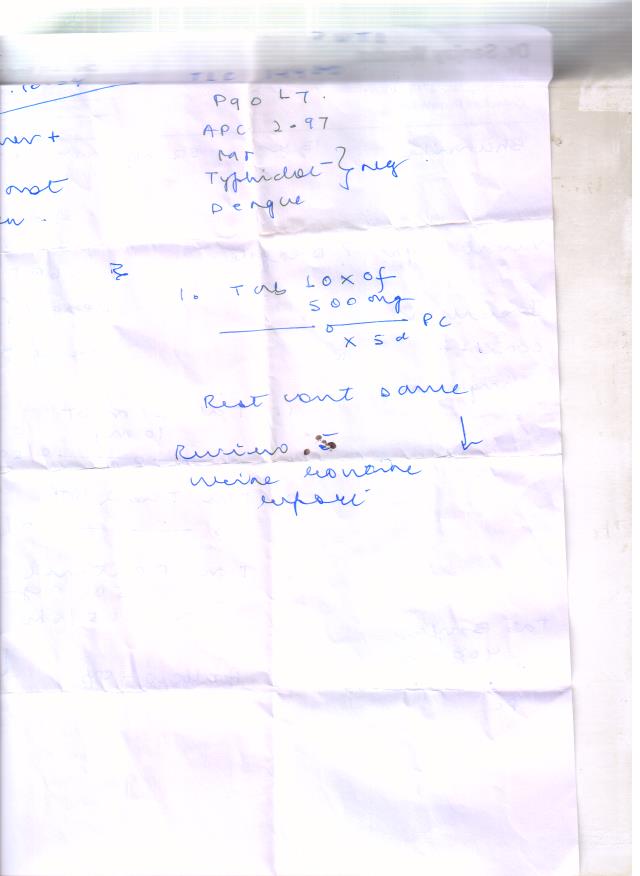 ver +
P90 L7.
APC 2.97
MP
not
Typhidot - } neg.
Dengue
Rx
1. Tab LOXOf
500 mg
PC
x 5 d
Rest cont same
Review c̄
urine routine
report